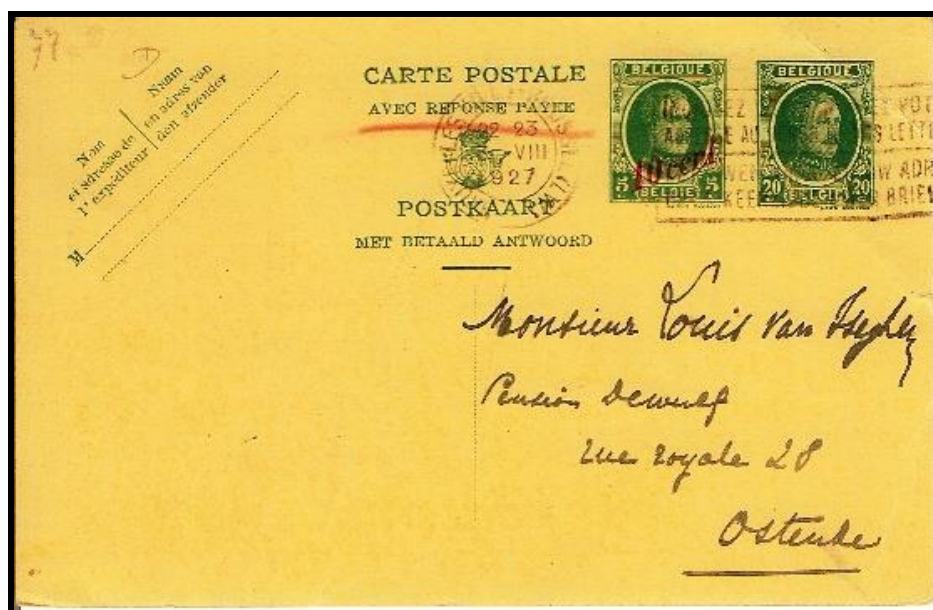 77
Nom
et adresse de
l'expéditeur
Naam
en adres van
den afzender
M
CARTE POSTALE
AVEC REPONSE PAYEE
22 23
VIII
1927
POSTKAART
MET BETAALD ANTWOORD
BELGIQUE
5 BELGIË 5
10 cent
BELGIQUE
20 BELGIË 20
VOT
LETT
W ADR
BRIEV
Monsieur Louis Van Iseghem
Pension Dewulf
rue royale 28
Ostende